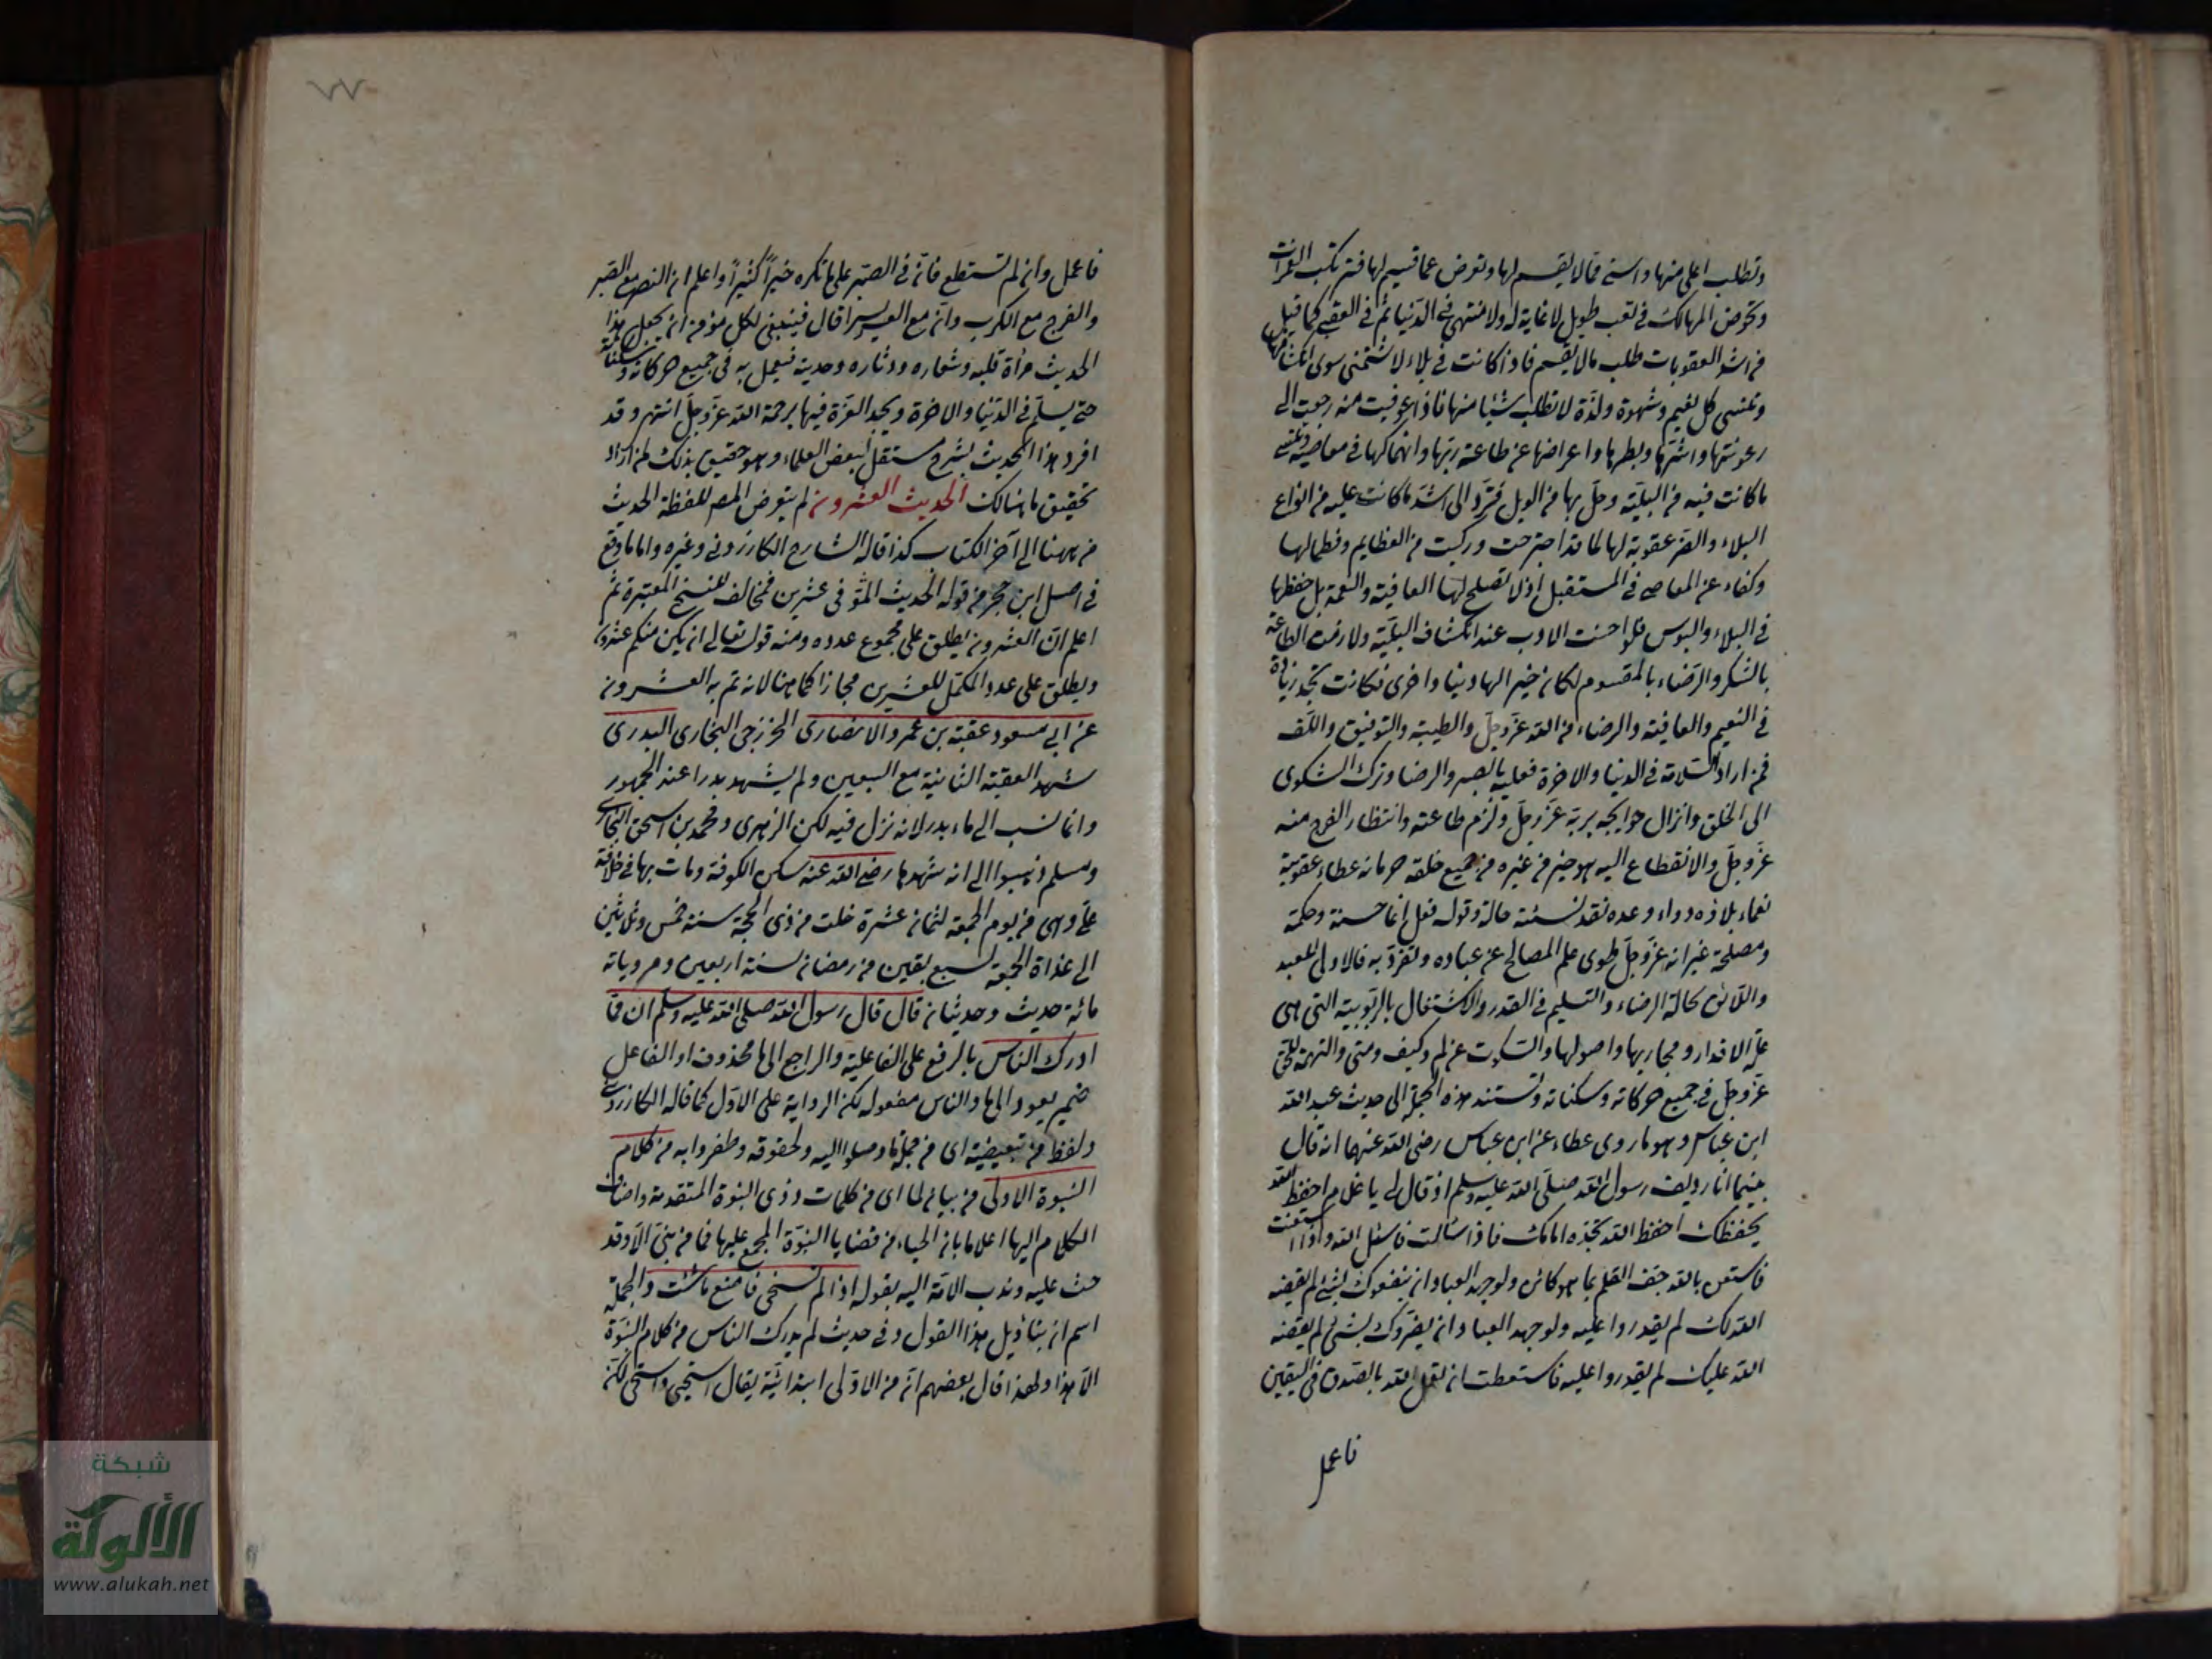 وتطلب اعلى منها واسنى مما لا يقسم لها وتعرض عما قسم لها فترتكب الغمرات
وتخوض المهالك في تعب طويل لا غاية له ولا منتهى في الدنيا ثم في العقبى كما قيل
من اشد العقوبات طلب ما لا يقسم فاذا كانت في بلاء لا تتمنى سوى انكشافها
وتنسى كل نعيم وشهوة ولذة لا تطلب شيئا منها فاذا عوفيت منه رجعت الى
رعونتها واشرها وبطرها واعراضها عن طاعة ربها وانهماكها في معاصيه وتنسى
ما كانت فيه من البلية وحل بها من الويل فترد الى اشد ما كانت عليه من انواع
البلاء والضر عقوبة لها لما قد اجترحت وركبت من العظايم وفطما لها
وكفاء عن المعاصي في المستقبل اذ لا تصلح لها العافية والنعمة بل حفظها
في البلاء والبوس فلو احسنت الادب عند انكشاف البلية ولازمت الطاعة
بالشكر والرضاء بالمقسوم لكان خيرا لها دنيا واخرى فكانت تجد زيادة
في النعيم والعافية والرضاء من الله عز وجل والطيبة والتوفيق واللطف
فمن اراد السلامة في الدنيا والاخرة فعليه بالصبر والرضا وترك الشكوى
الى الخلق وانزال حوايجه بربه عز وجل ولزوم طاعته وانتظار الفرج منه
عز وجل والانقطاع اليه هو خير من غيره من جميع خلقه حرمانه عطاء عقوبته
نعماء بلاؤه دواء وعده نقد نسئته حالة وقوله فعل انما حسنة وحكمة
ومصلحة غير انه عز وجل طوى علم المصالح عن عباده وتفرد به فالاولى للعبد
واللائق بحاله الرضاء والتسليم في القدر والاشتغال بالربوبية التي هي
علة الاقدار ومجاريها واصولها والسكوت عن لم وكيف ومتى والتهمة للحق
عز وجل في جميع حركاته وسكناته وتستند هذه الجملة الى حديث عبد الله
ابن عباس وهو ما روى عطاء عن ابن عباس رضي الله عنهما انه قال
بينما انا رديف رسول الله صلى الله عليه وسلم اذ قال لي يا غلام احفظ الله
يحفظك احفظ الله تجده امامك فاذا سالت فاسئل الله واذا استعنت
فاستعن بالله جف القلم بما هو كائن ولو جهد العباد ان ينفعوك بشئ لم يقضه
الله لك لم يقدروا عليه ولو جهد العباد ان يضروك بشئ لم يقضه
الله عليك لم يقدروا عليه فاستطعت ان تعمل لله بالصدق في اليقين
فاعمل
٧٧
فاعمل وان لم تستطع فان في الصبر على ما تكره خيرا كثيرا واعلم ان النصر مع الصبر
والفرج مع الكرب وان مع العسر يسرا قال فينبغي لكل مؤمن ان يجعل هذا
الحديث مرأة قلبه وشعاره ودثاره وحديثه فيعمل به في جميع حركاته وسكناته
حتى يسلم في الدنيا والاخرة ويجد العزة فيها برحمة الله عز وجل انتهى وقد
افرد هذا الحديث بشرح مستقل بعض العلماء وهو حقيق بذلك لمن اراد
تحقيق ما هنالك الحديث العشرون لم يتعرض المص للفظة الحديث
من ههنا الى آخر الكتاب كذا قاله الشارح الكازروني وغيره واما ما وقع
في اصل ابن حجر من قوله الحديث الموفى عشرين فمخالف للنسخ المعتبرة ثم
اعلم ان العشرون يطلق على مجموع عدده ومنه قوله تعالى ان يكن منكم عشرون
ويطلق على عدد المكمل للعشرين مجازا كما هنا لانه تم به العشرون
عن ابي مسعود عقبة بن عمرو الانصاري الخزرجي النجاري البدري
شهد العقبة الثانية مع السبعين ولم يشهد بدرا عند الجمهور
وانما نسب الى ماء بدر لانه نزل فيه لكن الزهري ومحمد بن اسحق البخاري
ومسلم ذهبوا الى انه شهدها رضي الله عنه سكن الكوفة ومات بها في خلافة
علي وهي من يوم الجمعة لثمان عشرة خلت من ذي الحجة سنة خمس وثلاثين
الى غداة الجمعة لسبع بقين من رمضان سنة اربعين ومروياته
مائة حديث وحديثان قال قال رسول الله صلى الله عليه وسلم ان مما
ادرك الناس بالرفع على الفاعلية والراجع الى ما محذوف او الفاعل
ضمير يعود الى ما والناس مفعوله لكن الرواية على الاول كما قاله الكازروني
ولفظ من تبعيضية اى من جملة ما وصلوا اليه ولحقوه وظفروا به من كلام
النبوة الاولى من بيان لما اى من كلمات ذوى النبوة المتقدمة واضاف
الكلام اليها اعلاما بان الحياء من قضايا النبوة المجمع عليها فما من نبي الا وقد
حث عليه وندب الامة اليه بقوله اذا لم تستحى فاصنع ما شئت والجملة
اسم ان بتاويل هذا القول وفي حديث لم يدرك الناس من كلام النبوة
الا هذا ولهذا قال بعضهم ان من الاولى ابتدائية يقال استحيى واستحى لكن
شبكة
الألوكة
www.alukah.net